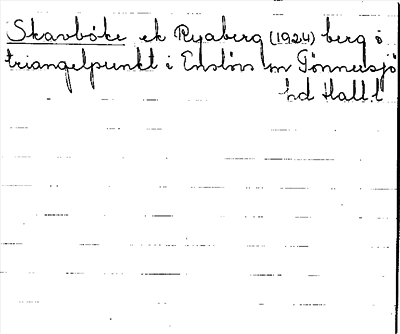 Skavböke ek Ryaberg (1924) berg o
triangelpunkt i Enslövs sn Tönnersjö
hd Hall.l